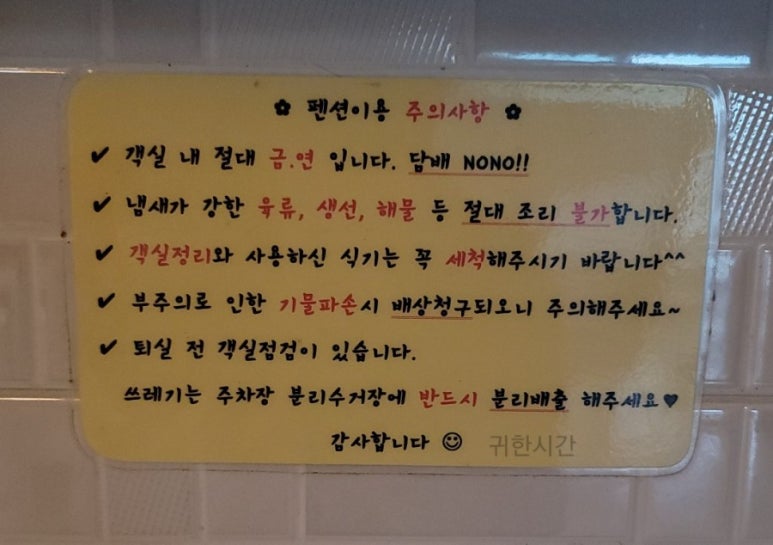 ✿ 펜션이용 주의사항 ✿
✔ 객실 내 절대 금.연 입니다. 담배 NONO!!
✔ 냄새가 강한 육류, 생선, 해물 등 절대 조리 불가합니다.
✔ 객실정리와 사용하신 식기는 꼭 세척해주시기 바랍니다^^
✔ 부주의로 인한 기물파손시 배상청구되오니 주의해주세요~
✔ 퇴실 전 객실점검이 있습니다.
쓰레기는 주차장 분리수거장에 반드시 분리배출 해주세요♥
감사합니다 ☺ 귀한시간